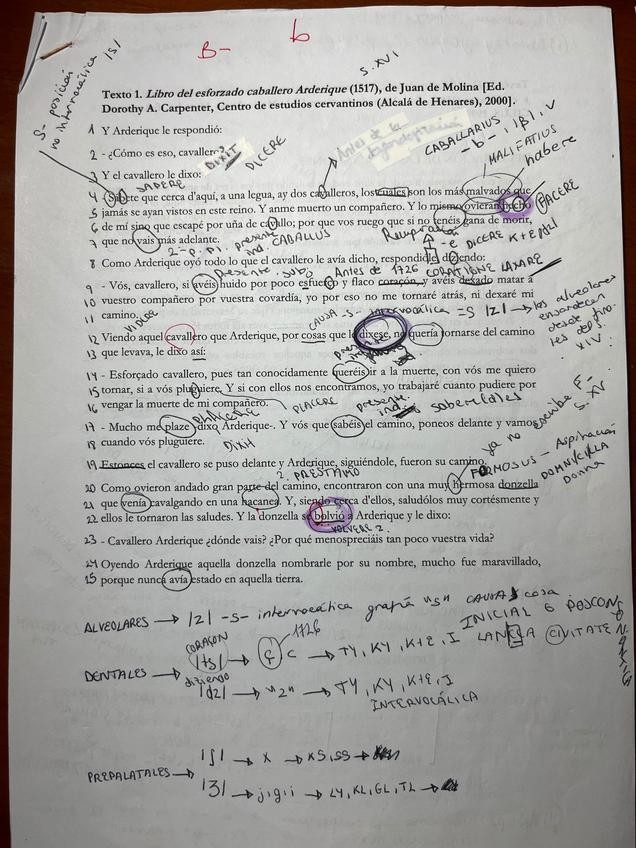 B- b
S. XVI
S- posición
no intervocálica |s|
Texto 1. Libro del esforzado caballero Arderique (1517), de Juan de Molina [Ed.
Dorothy A. Carpenter, Centro de estudios cervantinos (Alcalá de Henares), 2000].
1 Y Arderique le respondió:
Antes de la
CABALLARIUS
- b - , |β| , v
2 - ¿Cómo es eso, cavallero?
DIXIT DICERE
MALIFATIUS
habere
3 Y el cavallero le dixo:
SAPERE
4 - Sabete que cerca d'aquí, a una legua, ay dos cavalleros, los cuales son los más malvados que
5 jamás se ayan vistos en este reino. Y anme muerto un compañero. Y lo mismo ovieran hecho
FACERE
6 de mí sino que escapé por uña de cavallo; por que vos ruego que si no tenéis gana de morir,
7 que no vais más adelante.
2ª p. pl. presente
ind CABALLUS
- e DICERE K+E,I |dz|
8 Como Arderique oyó todo lo que el cavallero le avía dicho, respondióle diziendo:
Presente subj
Antes de 1726 CORATIONE LAXARE
9 - Vós, cavallero, si avéis huido por poco esfuerço y flaco coraçón, y avéis dexado matar a
10 vuestro compañero por vuestra covardía, yo por eso no me tornaré atrás, ni dexaré mi
11 camino.
VIDERE
CAUSA -S- intervocálica = S |z| → los alveolares
ensordecen
desde
XIV
12 Viendo aquel cavallero que Arderique, por cosas que le dixese, no quería tornarse del camino
13 que levava, le dixo así:
presente
14 - Esforçado cavallero, pues tan conocidamente queréis ir a la muerte, con vós me quiero
15 tornar, si a vós pluguiere. Y si con ellos nos encontramos, yo trabajaré cuanto pudiere por
16 vengar la muerte de mi compañero.
PLACERE
presente
ind
17 - Mucho me plaze -dixo Arderique-. Y vós que sabéis el camino, poneos delante y vamos
18 cuando vós pluguiere.
DIXIT
ya no
escribe F-
S. XV
19 Estonces el cavallero se puso delante y Arderique, siguiéndole, fueron su camino.
PRÉSTAMO
FORMOSUS - Aspiración
DOMNICILLA
Donna
20 Como ovieron andado gran parte del camino, encontraron con una muy hermosa donzella
21 que venía cavalgando en una hacanea. Y, siendo cerca d'ellos, saludólos muy cortésmente y
22 ellos le tornaron las saludes. Y la donzella se bolvió a Arderique y le dixo:
VOLVERE
23 - Cavallero Arderique ¿dónde vais? ¿Por qué menospreciáis tan poco vuestra vida?
24 Oyendo Arderique aquella donzella nombrarle por su nombre, mucho fue maravillado,
25 porque nunca avía estado en aquella tierra.
ALVEOLARES → |z| -s- intervocálica grafía "s" CAUSA > cosa
CORAÇON
1726
INICIAL O POSCON
DENTALES → |ts| → ç c → TY, KY, K+E, I LANCEA CIVITATE
diziendo
|dz| → "z" → TY, KY, K+E, I
INTERVOCÁLICA
PREPALATALES → |ʃ| → x → KS, SS →
|ʒ| → j, g, i → LY, KL, GL, TL →